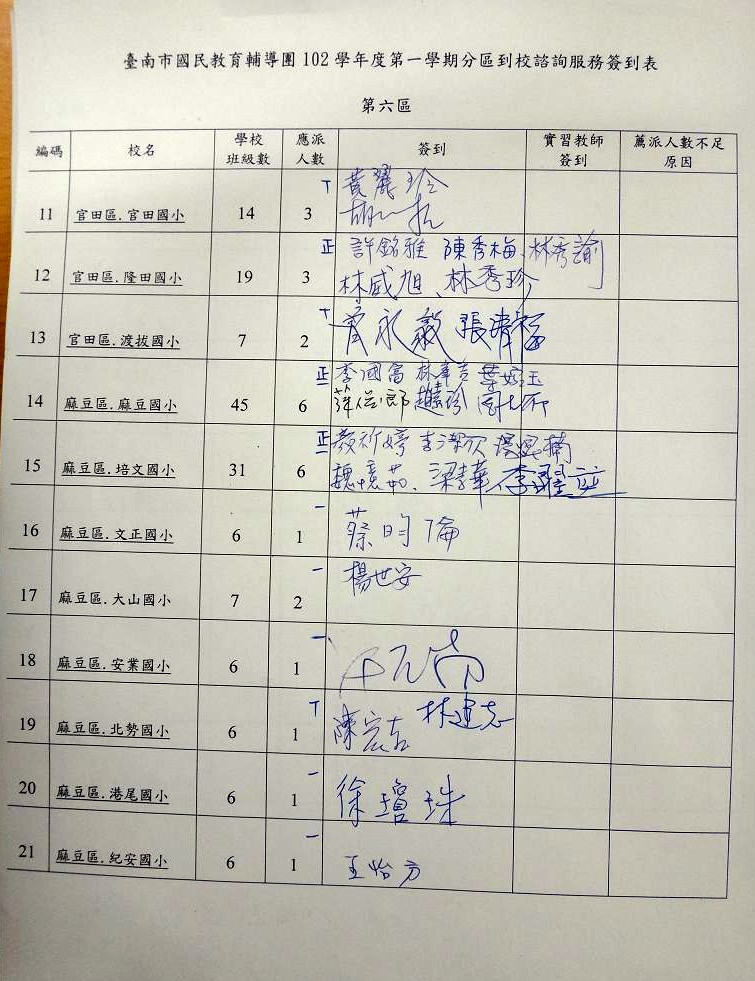 臺南市國民教育輔導團102學年度第一學期分區到校諮詢服務簽到表
第六區
編碼 校名 學校班級數 應派人數 簽到 實習教師簽到 薦派人數不足原因
11 官田區.官田國小 14 3 黃麗玲
12 官田區.隆田國小 19 3 正 許銘雅 陳秀梅 林秀諭
林威旭、林秀珍
13 官田區.渡拔國小 7 2 曾永毅 張瑋福
14 麻豆區.麻豆國小 45 6 正一 李國富
15 麻豆區.培文國小 31 6 正一 顏祈婷
梁孝華
16 麻豆區.文正國小 6 1 一 蔡昀倫
17 麻豆區.大山國小 7 2 一 楊世安
18 麻豆區.安業國小 6 1 一
19 麻豆區.北勢國小 6 1 陳宏吉 林建志
20 麻豆區.港尾國小 6 1 一 徐瓊珠
21 麻豆區.紀安國小 6 1 一 王怡方